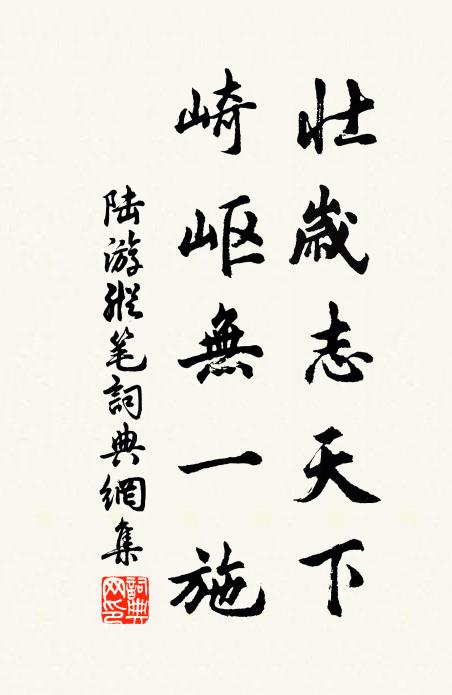 壮歲志天下
崎岖無一施
陆游縱笔詞典網集
詞典网印